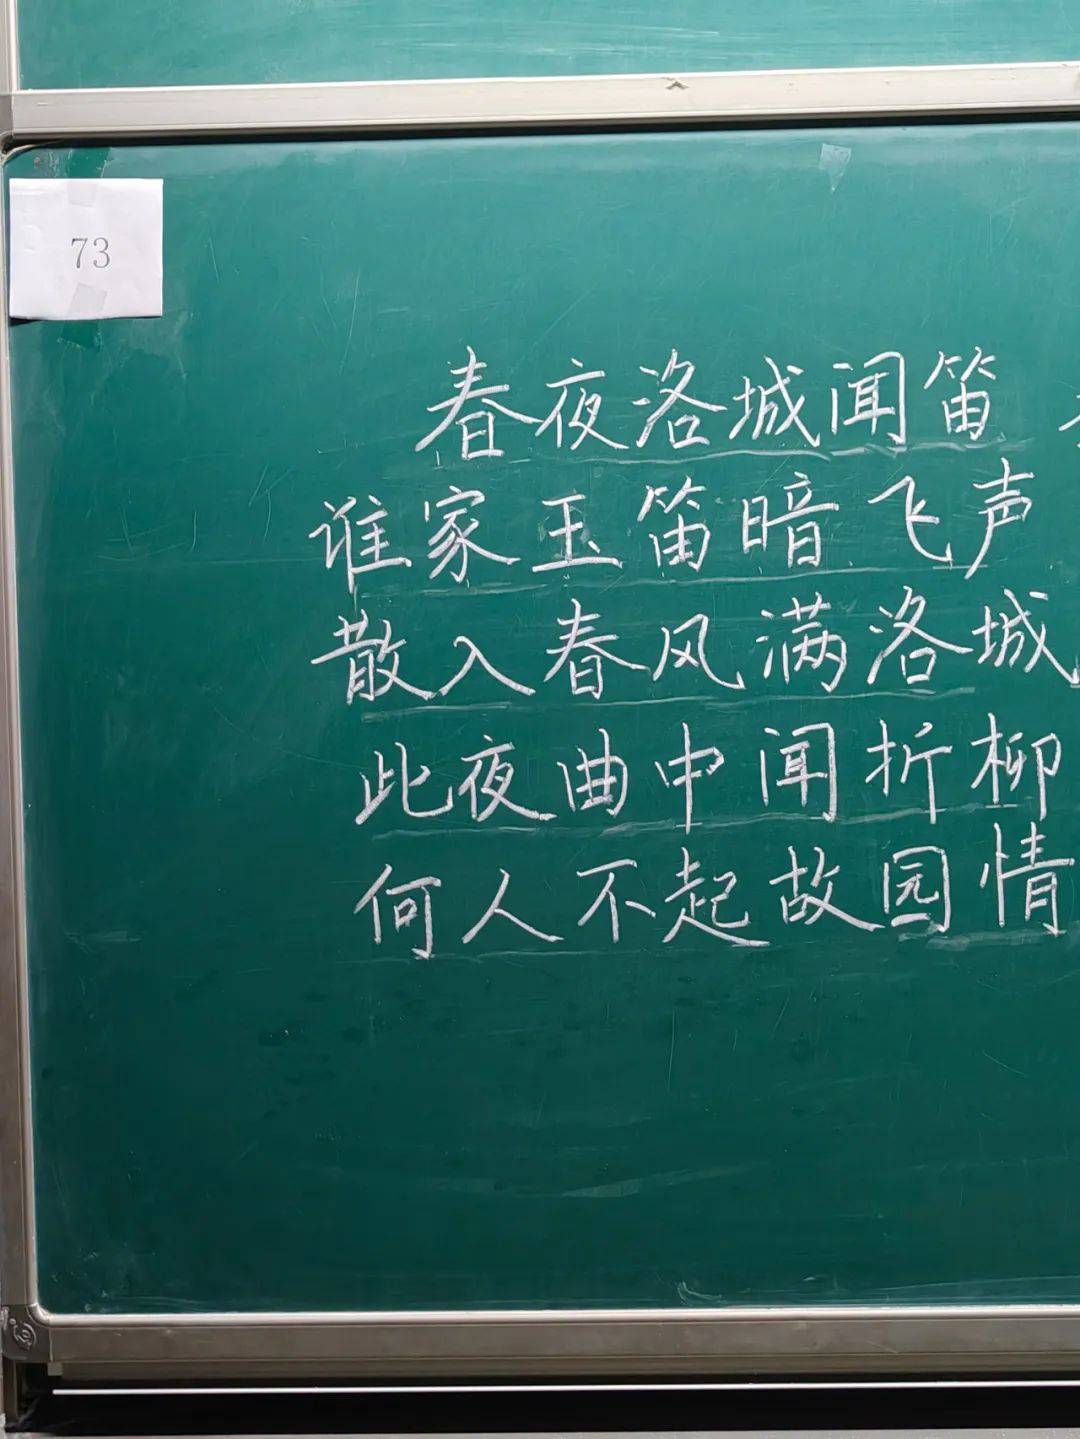 73
春夜洛城闻笛
谁家玉笛暗飞声
散入春风满洛城
此夜曲中闻折柳
何人不起故园情